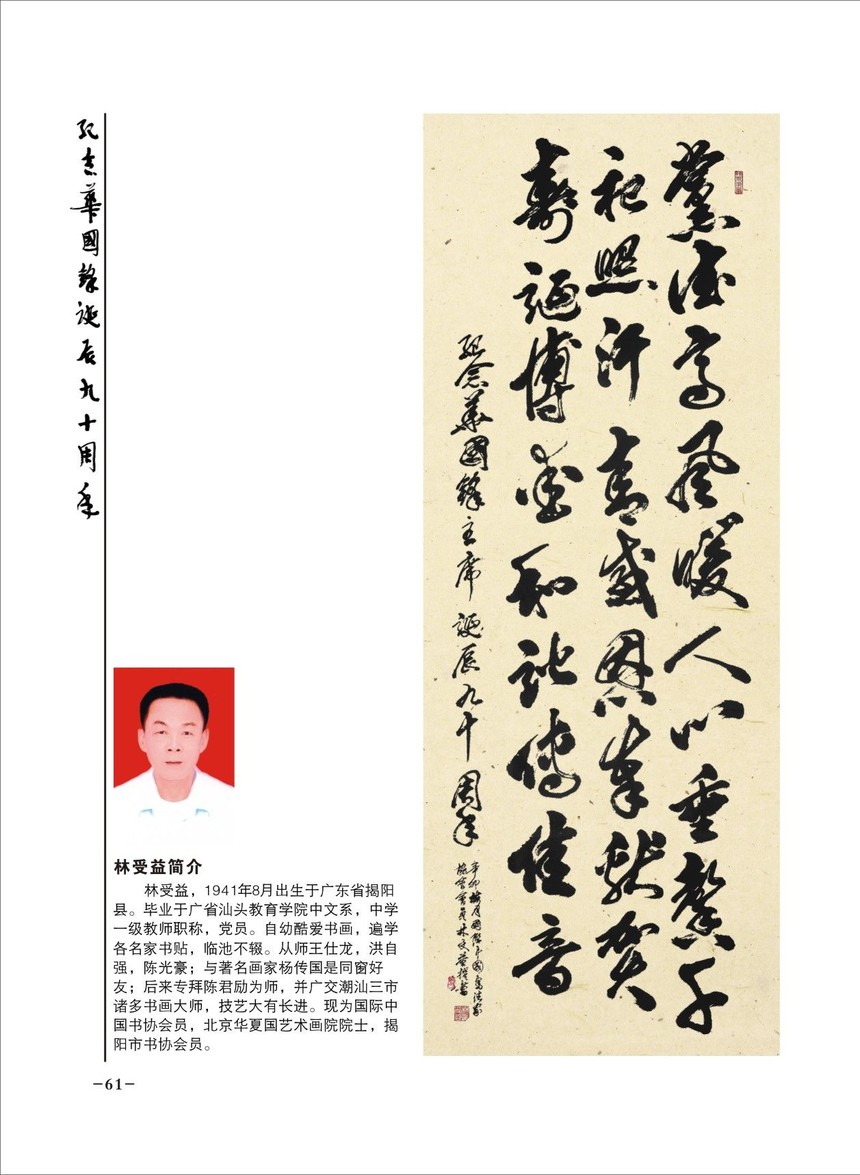 纪念華國鋒誕辰九十周年
黨德高風暖人心垂馨千
祀照汗青感恩奉献贺
寿诞博爱和谐传佳音
纪念華國鋒主席誕辰九十周年
林受益简介
林受益，1941年8月出生于广东省揭阳
县。毕业于广省汕头教育学院中文系，中学
一级教师职称，党员。自幼酷爱书画，遍学
各名家书贴，临池不辍。从师王仕龙，洪自
强，陈光豪；与著名画家杨传国是同窗好
友；后来专拜陈君励为师，并广交潮汕三市
诸多书画大师，技艺大有长进。现为国际中
国书协会员，北京华夏国艺术画院院士，揭
阳市书协会员。
-61-